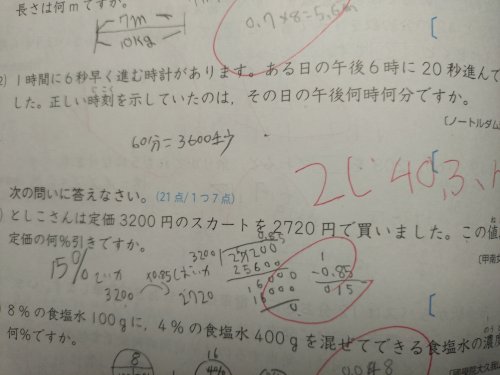 長さは何mですか。
7m
10kg
0.7×8=5.6m
2) 1時間に6秒早く進む時計があります。ある日の午後6時に20秒進んで
した。正しい時刻を示していたのは，その日の午後何時何分ですか。
じこく
〔ノートルダム
60分=3600秒
次の問いに答えなさい。(21点/1つ7点)
としこさんは定価3200円のスカートを2720円で買いました。この値
定価の何%引きですか。
〔甲南
15%
ていか
3200
×0.85
2720
0.85
3200
27200
25600
16000
16000
0
1
-0.85
0.15
8%の食塩水100gに，4%の食塩水400gを混ぜてできる食塩水の濃
何%ですか。
8
16